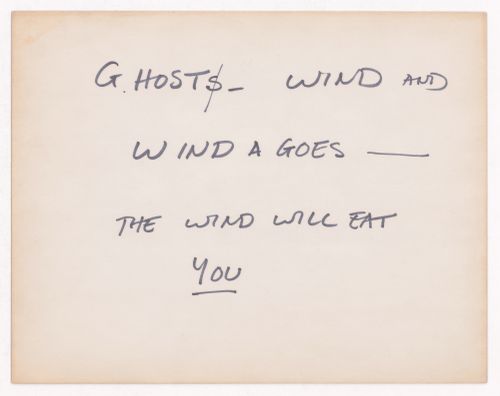 G.HOST$- WIND AND
WIND A GOES —
THE WIND WILL EAT
YOU